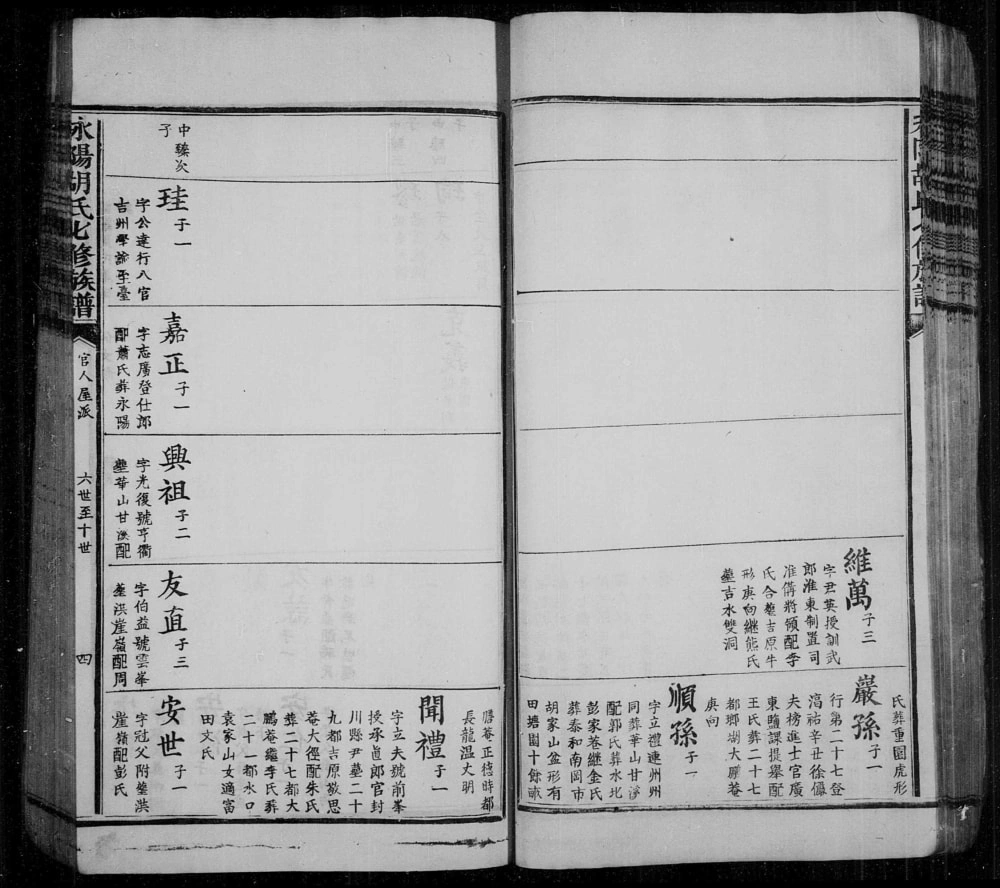 維萬
子三
字君英授訓武
郎淮東制置司
准偹將領配李
氏合塟吉原牛
形庚向継熊氏
塟吉水雙洞
氏葬重園虎形
巖孫
子一
行第二十七登
淳祐辛丑徐儼
夫榜進士官廣
東鹽課提舉配
王氏葬二十七
都鄉胡大屋菴
庚向
順孫
子一
字立禮連州州
同葬華山甘溪
配郭氏葬水北
彭家巷継金氏
葬泰和南岡市
胡家山盆形有
田塘園十餘畝
膳菴正德時都
長龍温丈明
聞禮
子一
字立夫號前峯
授承直郎官封
川縣尹墓二十
九都吉原敬思
菴大徑配朱氏
葬二十七都大
鵬菴繼李氏葬
二十一都水口
袁家山女適富
田文氏
中臻次
子
珪
子一
字公達行八官
吉州學諭至臺
嘉正
子一
字志廣登仕郎
配蕭氏葬永陽
興祖
子二
字光復號亨衢
塟華山甘溪配
友直
子三
字伯益號雲峯
塟洪崖嶺配周
安世
子一
字冠父附塟洪
崖嶺配彭氏
永陽胡氏七修族譜
官人屋派
六世至十世
四